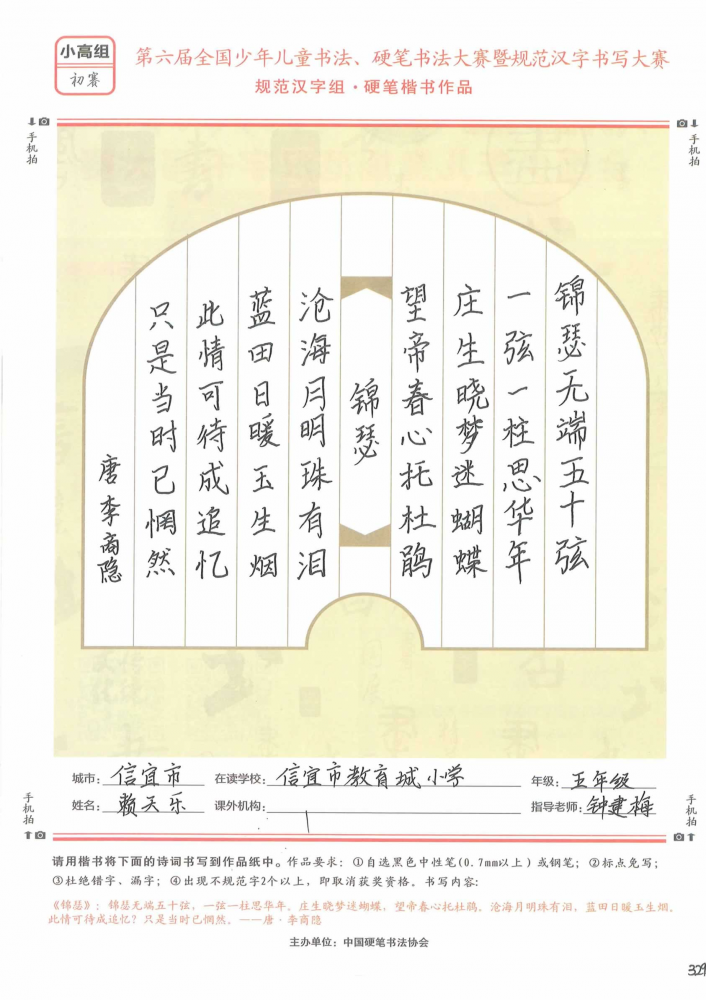 小高组
初赛
第六届全国少年儿童书法、硬笔书法大赛暨规范汉字书写大赛
规范汉字组·硬笔楷书作品
手机拍
手机拍
锦瑟无端五十弦
一弦一柱思华年
庄生晓梦迷蝴蝶
望帝春心托杜鹃
锦瑟
沧海月明珠有泪
蓝田日暖玉生烟
此情可待成追忆
只是当时已惘然
唐李商隐
城市：信宜市 在读学校：信宜市教育城小学 年级：五年级
姓名：赖天乐 课外机构： 指导老师：钟建梅
手机拍
手机拍
请用楷书将下面的诗词书写到作品纸中。作品要求：①自选黑色中性笔(0.7mm以上)或钢笔；②标点免写；
③杜绝错字、漏字；④出现不规范字2个以上，即取消获奖资格。书写内容：
《锦瑟》：锦瑟无端五十弦，一弦一柱思华年。庄生晓梦迷蝴蝶，望帝春心托杜鹃。沧海月明珠有泪，蓝田日暖玉生烟。
此情可待成追忆？只是当时已惘然。——唐·李商隐
主办单位：中国硬笔书法协会
329